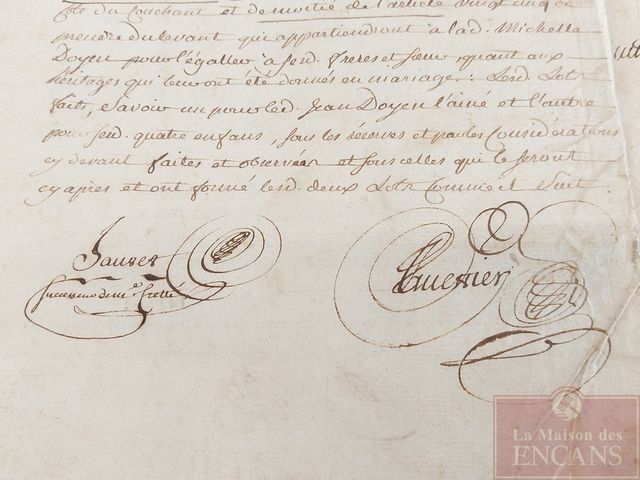 Côté du Couchant et de moitié de l'article vingt cinq a
prendre du levant qui appartiendront à lad. Michelle
Doyen pour l'égaller à sesd. freres et sœur, quant aux
héritages qui leur ont été donnés en mariage; Lesd. Lots
faits, savoir un pour led. Jean Doyen l'ainé et l'autre
pour sesd. quatre enfans, sous les réserves et par les Considérations
cy devant faites et observées et sous celles qui le seront
cy après et ont formé lesd. deux Lots Comme il suit.
successeur de m.e
La Maison des
ENCANS